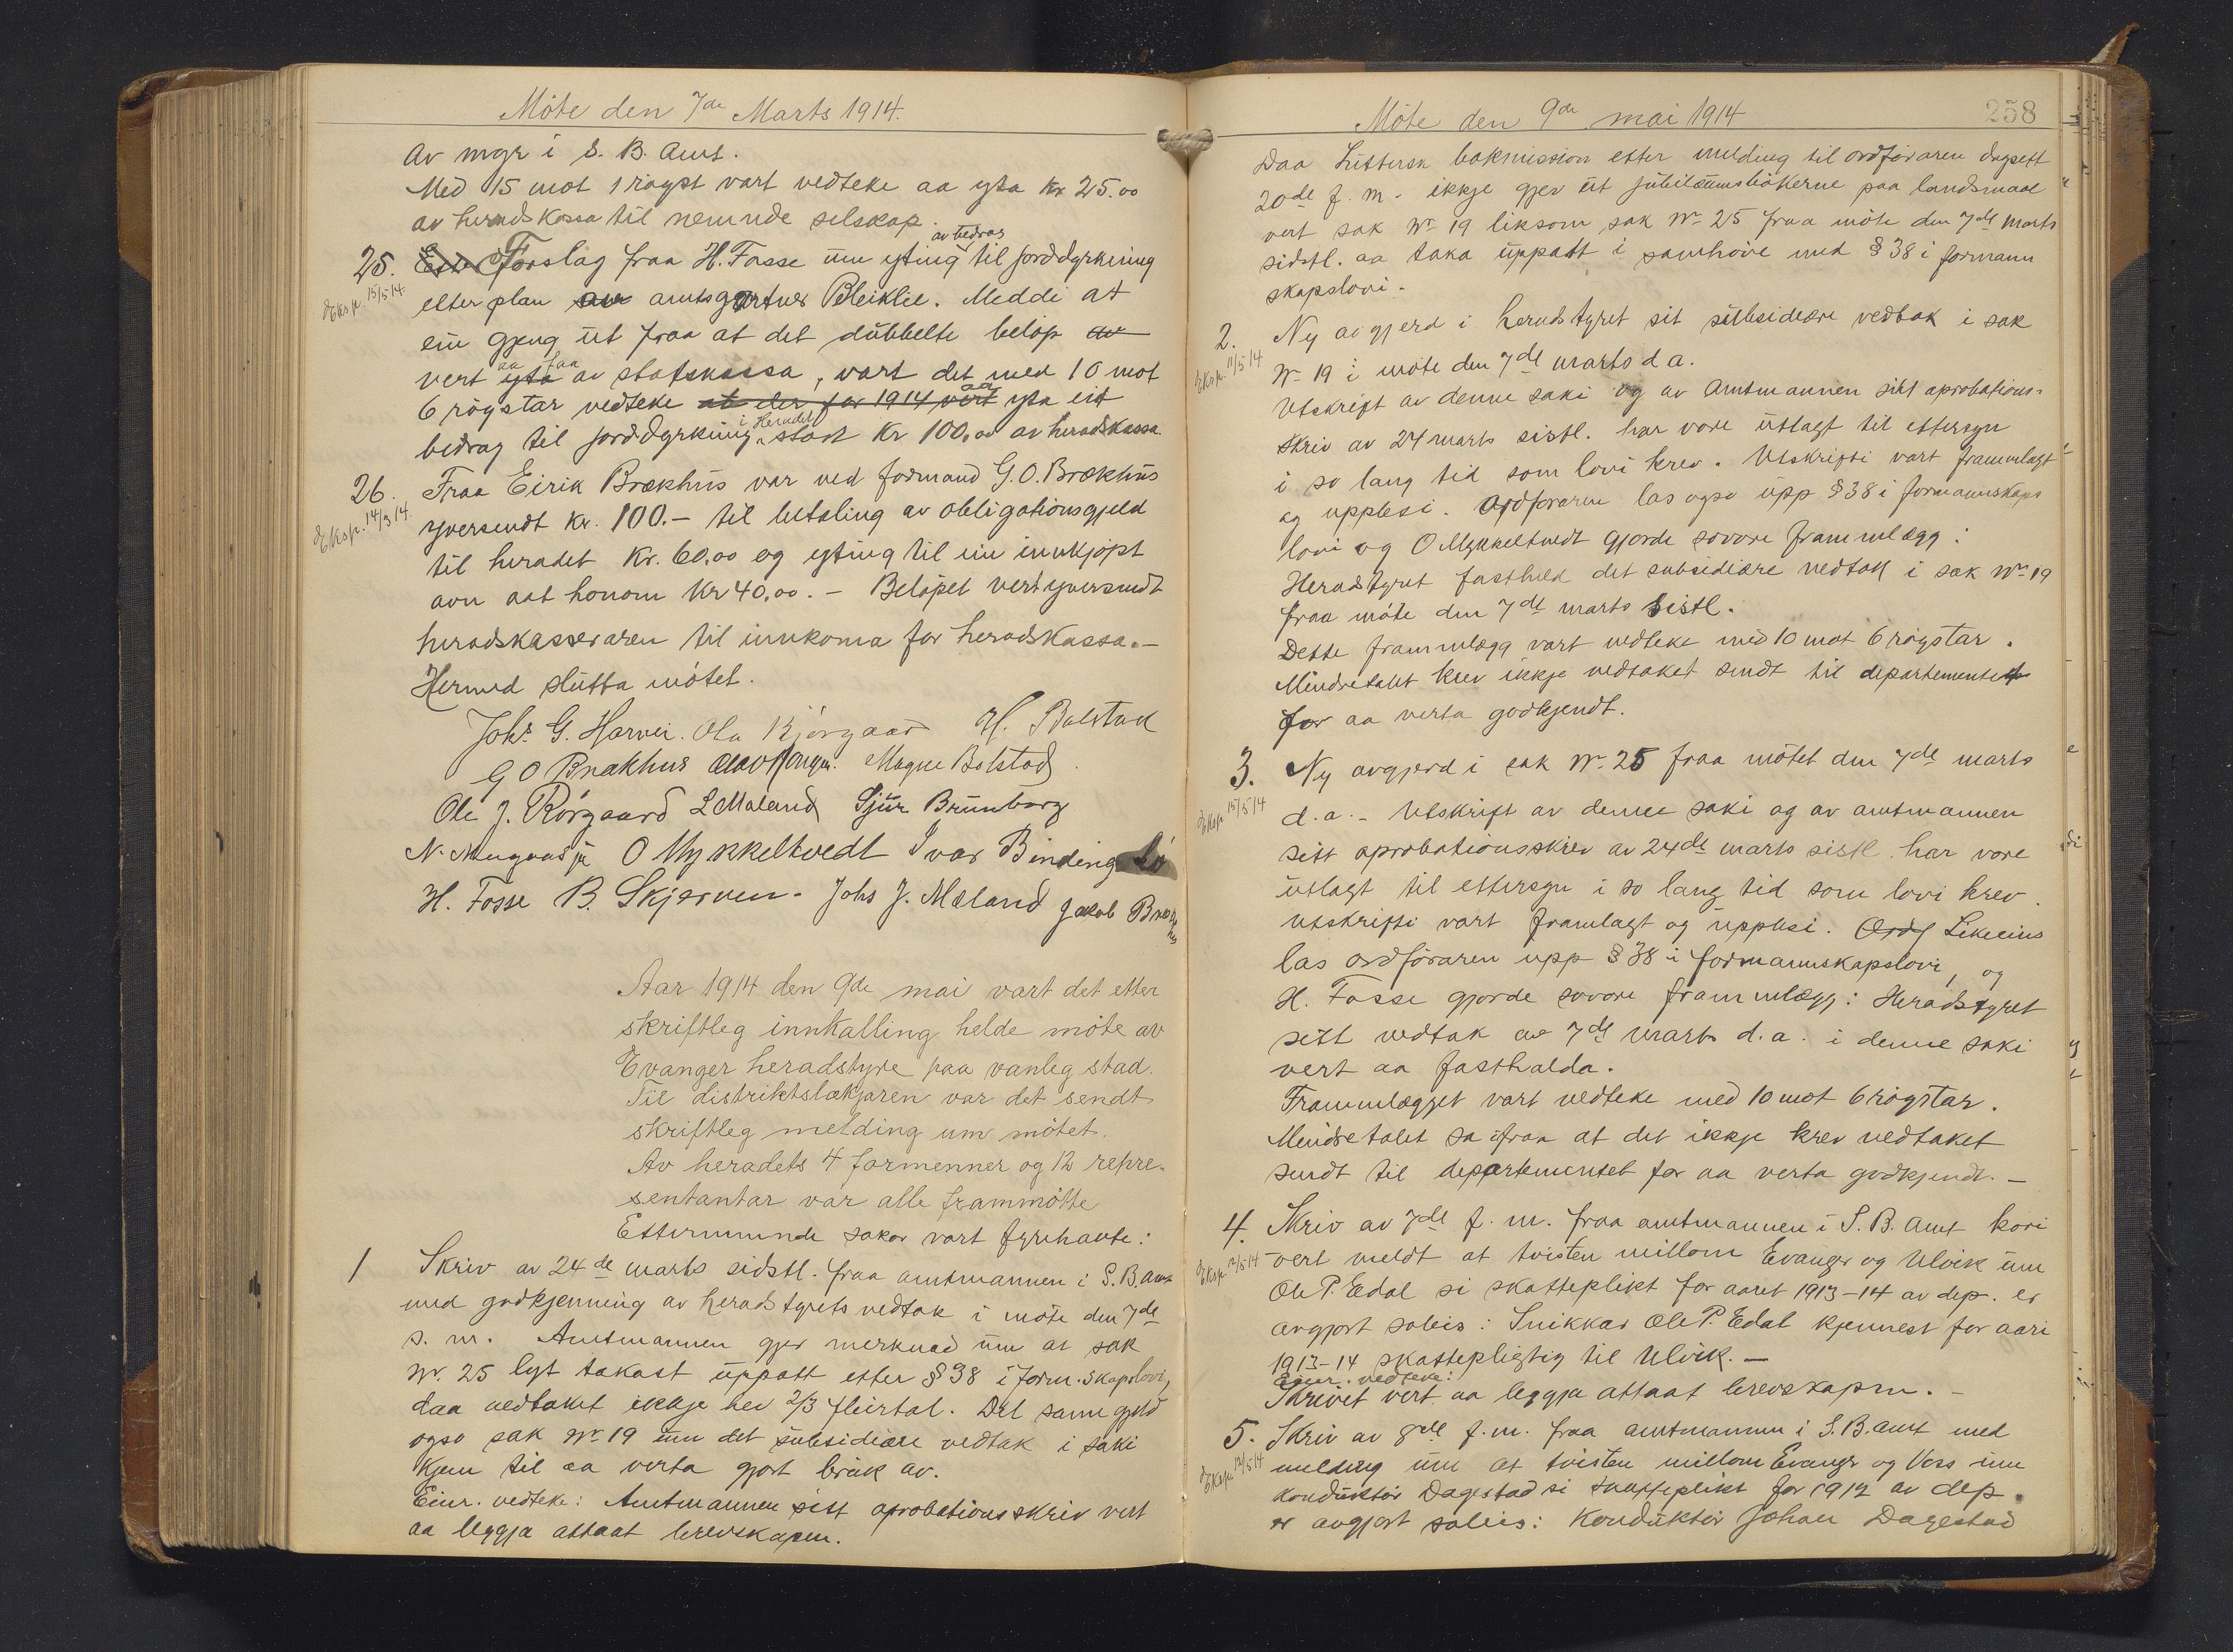 Möte den 7de Marts 1914.
av mgr i S. B. Amt.
Med 15 mot 1 røgst vart vedteke aa yta kr 25.00
av heradskassa til nemnde selskap.
25. Forslag fraa H. Fosse um yting av bedrag til jorddyrkning
Eksp. 15/5 14.
etter plan av amtsgartner Bleiklie. Meddi at
ein gjeng ut fraa at det dubbelte belöp av
vert yta aa faa av statskassa, vart det med 10 mot
6 rögstar vedteke at der for 1914 vert aa yta eit
bedrag til jorddyrking i Heradet, stort Kr 100,00 av heradskassa.
26. Fraa Eirik Brækhus var ved formand G. O. Brækhus
Eksp. 14/3 14.
yversendt kr. 100.- til betaling av obligationsgjeld
til heradet Kr. 60,00 og yting til ein innkjöpt
ovn aat honom Kr 40,00. - Belöpet vert yversendt
heradskasseraren til innkoma for heradskassa. -
Hermed slutta mötet.
Johs. G. Horvei. Ola Björgaas H. Bolstad
G O Brækhus Olav Magne Bolstad.
Ole J. Rörgaard L Mæland Sjur Brunborg
N. Mugaas O Mykkeltvedt Ivar Binding
H. Fosse B. Skjerven. Johs J. Mæland Jakob Brækhus
Aar 1914 den 9de mai vart det etter
skriftleg innkalling helde möte av
Evanger heradstyre paa vanleg stad.
Til distriktslækjaren var det sendt
skriftleg melding um mötet.
Av heradets 4 formenner og 12 repre-
sentantar var alle frammötte
Etternemnde sakor vart fyrehavte:
1 Skriv av 24de marts sidstl. fraa amtmannen i S. B. amt
med godkjenning av heradstyrets vedtak i möte den 7de
s. m. Amtmannen gjer merknad um at sak
nr. 25 lyt takast uppatt etter § 38 i form.skapslovi,
daa vedtaket ikkje hev 2/3 fleirtal. Det same gjeld
ogso sak nr 19 um det subsidiære vedtak i saki
kjem til aa verta gjort bruk av.
Einr. vedteke: Amtmannen sitt aprobationsskriv vert
aa leggja attaat brevskapen.
Möte den 9de mai 1914 258
Daa Littersk bokmission etter melding til ordföraren dagsett
20de f. m. ikkje gjev ut jubilæumsbökerne paa landsmaal
vert sak nr 19 liksom sak nr 25 fraa möte den 7de marts
sidstl. aa taka uppatt i samhöve med § 38 i formann
skapslovi.
2. Ny avgjerd i heradstyret sit subsidiære vedtak i sak
Eksp. 11/5 14
nr 19 i möte den 7de marts d a.
Utskrift av denne saki og av Amtmannen sitt aprobations-
skriv av 24 marts sistl. har vore utlagt til ettersyn
i so lang tid som lovi krev. Utskrifti vart frammlagt
og upplesi. Ordföraren las ogso upp § 38 i formannskaps
lovi og O Mykkeltvedt gjorde sovore frammlegg:
Heradstyret fastheld det subsidiære vedtak i sak nr 19
fraa möte den 7de marts sistl.
Dette frammlegg vart vedteke med 10 mot 6 rögstar.
Mindretalet krev ikkje vedtaket sendt til departementet
for aa verta godkjendt.
3. Ny avgjerd i sak nr. 25 fraa mötet den 7de marts
Eksp. 15/5 14
d. a. - Utskrift av denne saki og av amtmannen
sitt aprobationsskriv av 24de marts sistl. har vore
utlagt til ettersyn i so lang tid som lovi krev.
Utskrifti vart framlagt og upplesi. Ordf Likeeins
las ordföraren upp § 38 i formannskapslovi, og
H. Fosse gjorde sovore frammlegg: Heradstyret
sitt vedtak av 7de marts d. a. i denne saki
vert aa fasthalda.
Frammlegget vart vedteke med 10 mot 6 rögstar.
Mindretalet sa ifraa at det ikkje krev vedtaket
sendt til departementet for aa verta godkjendt. -
4. Skriv av 7de f. m. fraa amtmannen i S. B. Amt kori
Eksp. 12/5 14
vert meldt at tvisten millom Evanger og Ulvik um
Ole P. Edal si skatteplikt for aaret 1913-14 av dep. er
avgjort soleis: Snikkar Ole P. Edal kjennest for aari
1913-14 skattepligtig til Ulvik. -
Einr. vedteke:
Skrivet vert aa leggja attaat brevskapen. -
5. Skriv av 8de f. m. fraa amtmannen i S. B. amt med
Eksp. 12/5 14
melding um at tvisten millom Evanger og Voss um
konduktör Dagestad si skatteplikt for 1912 av dep.
er avgjort soleis: Konduktör Johan Dagestad